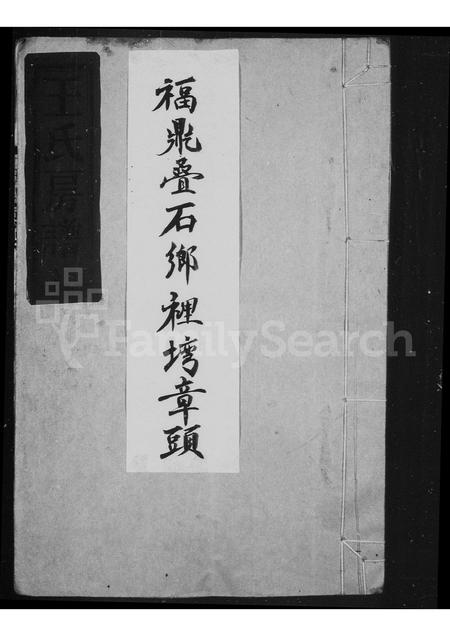 福鼎疊石鄉裡塆章頭
王氏房譜
FamilySearch